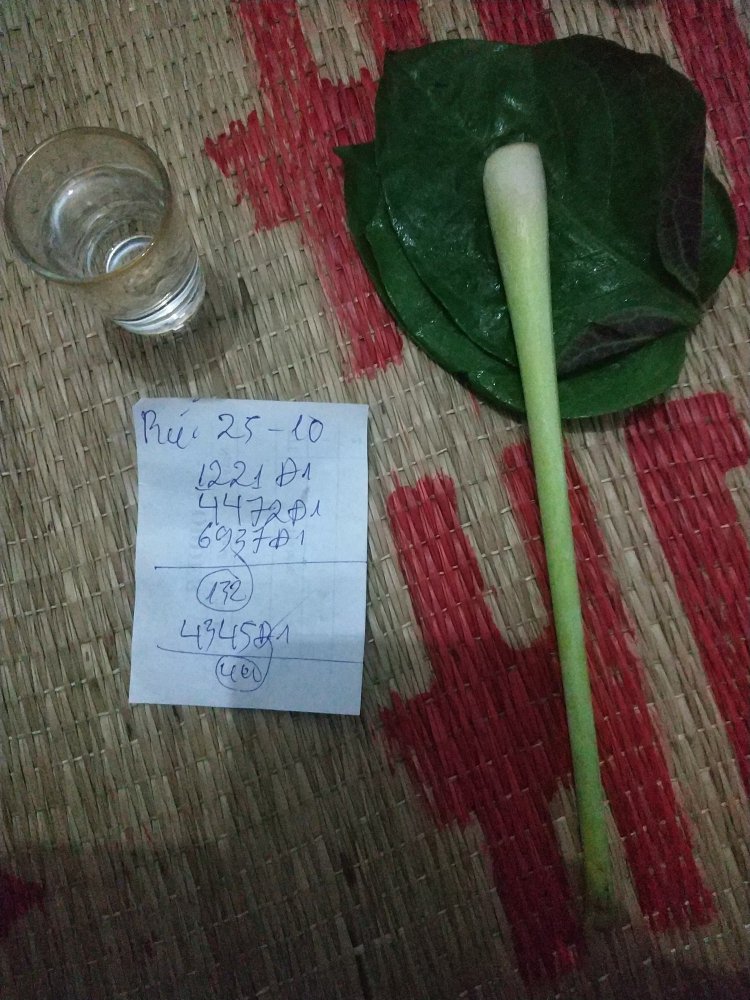 25-10
1221 Đ1
4472Đ1
6937Đ1
132
4345Đ1